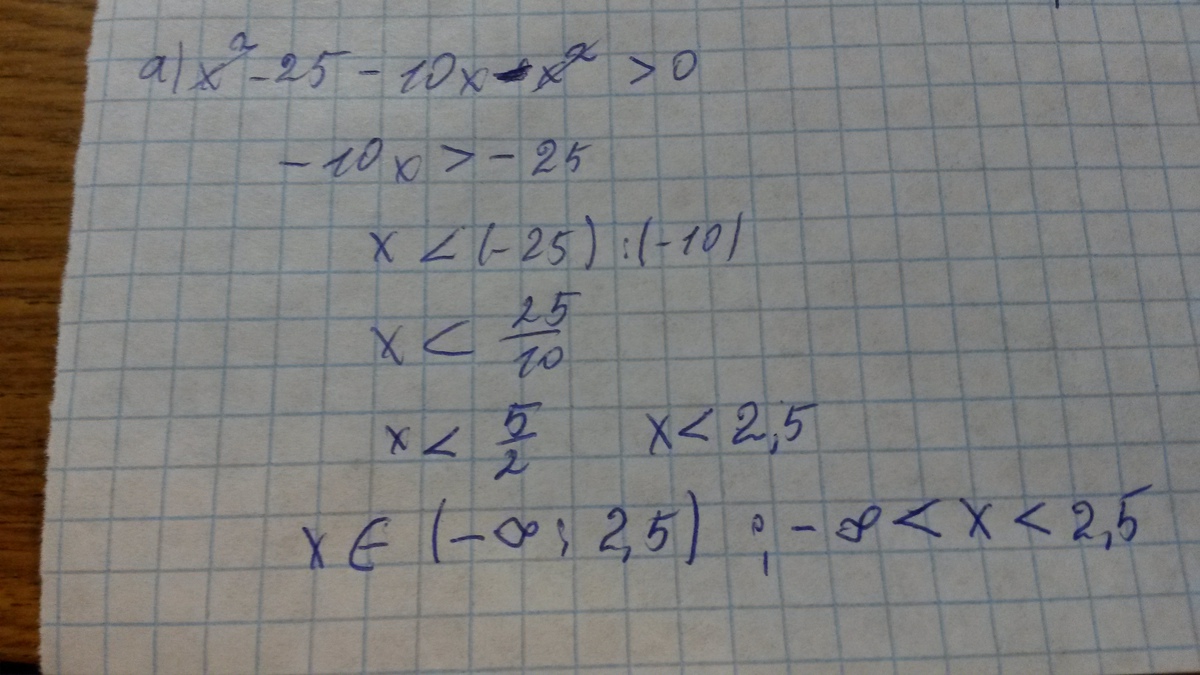 а) x² - 25 - 10x - x² > 0
-10x > -25
x < (-25) : (-10)
x < 25/10
x < 5/2 x < 2,5
x ∈ (-∞; 2,5) ; -∞ < x < 2,5